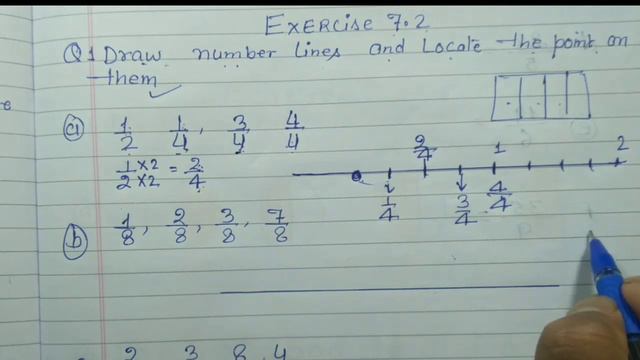 Exercise 7.2
Q1 Draw number lines and locate the point on
them
(a) 1/2 1/4, 3/4 4/4
1/2 ×2 ×2 = 2/4
2/4 1 2
1/4 3/4 4/4
(b) 1/8, 2/8, 3/8, 7/8
2 3 8 4